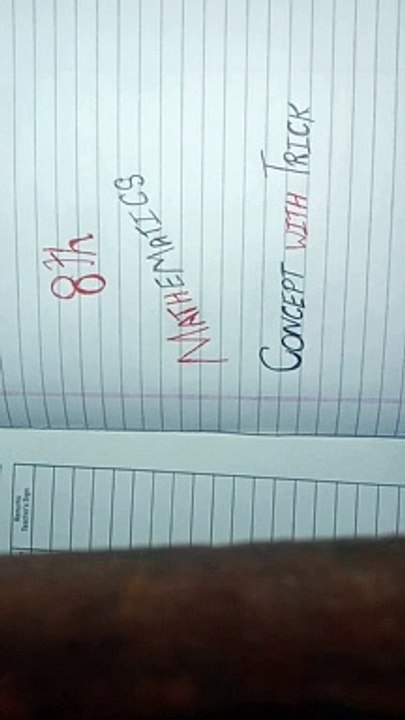 8th
MATHEMATICS
CONCEPT WITH TRICK
Remarks
Teacher's Sign.